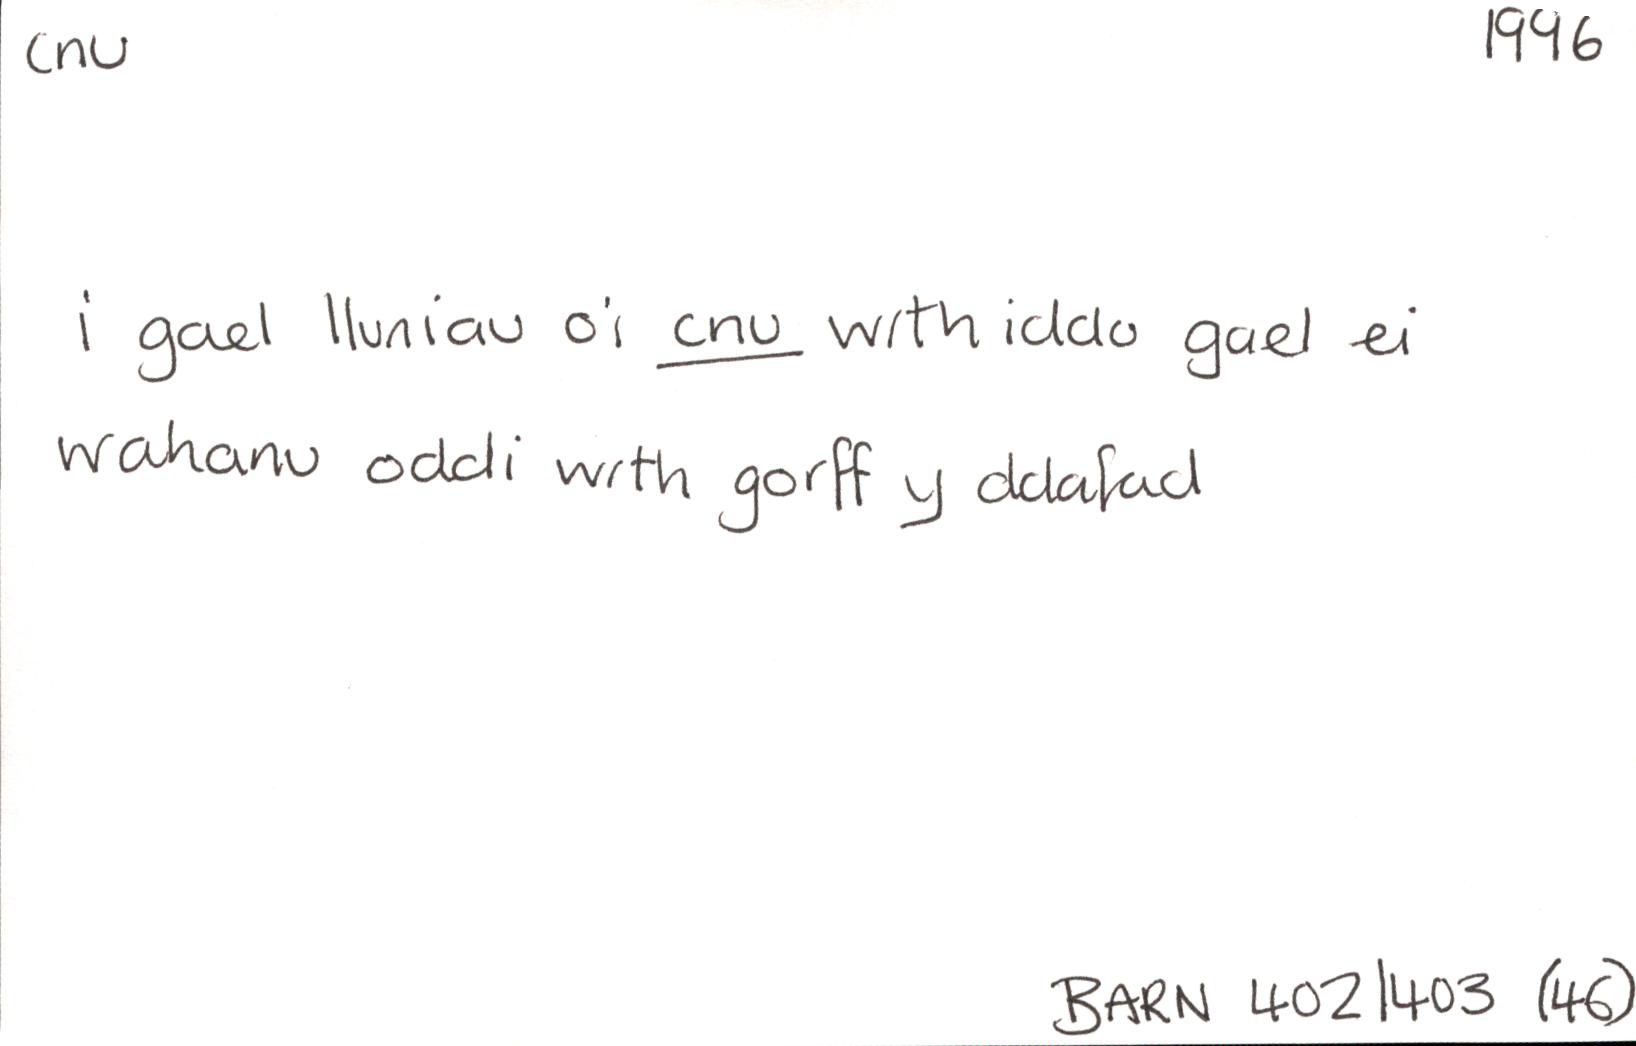 cnu
1996
i gael lluniau o'i cnu wrth iddo gael ei
wahanu oddi wrth gorff y ddafad
BARN 402/403 (46)